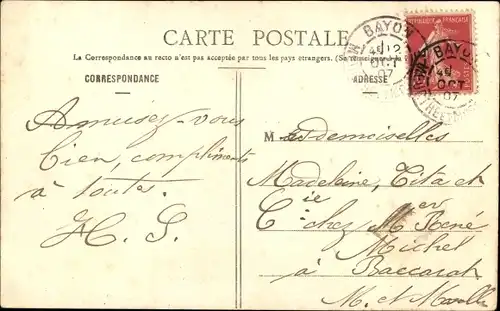 CARTE POSTALE
La Correspondance au recto n'est pas acceptée par tous les pays étrangers. (Se renseigner à la
CORRESPONDANCE
ADRESSE
REPUBLIQUE FRANÇAISE
BAYON
12
OCT
07
BAYON
OCT
07
Amusez-vous
bien, compliments
à toutes.
H. S.
Mesdemoiselles
Madeleine, Tita et
Cie chez Mer René
Michel
à Baccarat
M. et Moselle